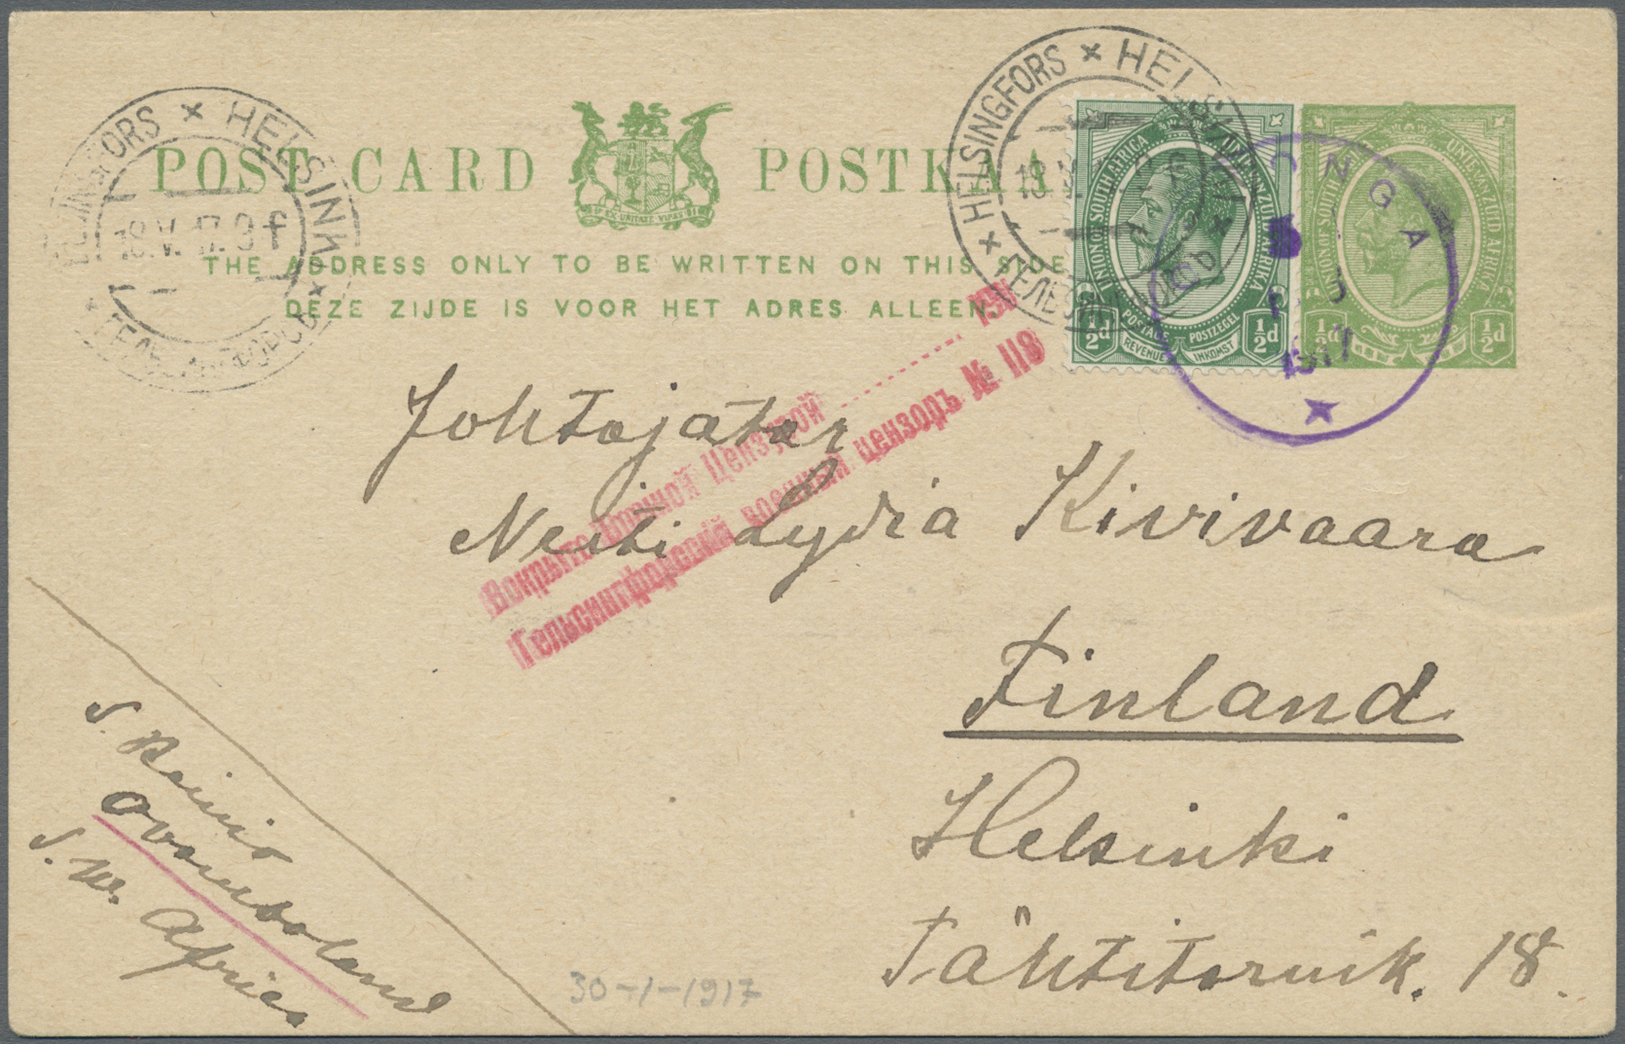 HELSINGFORS × HELSINKI
18.V.17.
POST CARD POSTKAA
THE ADDRESS ONLY TO BE WRITTEN ON THIS SIDE
DEZE ZIJDE IS VOOR HET ADRES ALLEEN
HELSINGFORS × HELSINKI
18.V
UNION OF SOUTH AFRICA UNIE VAN ZUID AFRIKA
POSTAGE POSTZEGEL
REVENUE INKOMST
½d ½d
UNION OF SOUTH UNIE VAN ZUID AFRIKA
½d ½d
ONGA
1917
Вскрыто Военной Цензурой ........ 191
Гельсингфорсский военный цензоръ № 118
Johtajatar
Neiti Lydia Kivivaara
Finland
Helsinki
Tähtitornik. 18.
S. Reinio
Ovamboland
S. W. Africa
30-1-1917